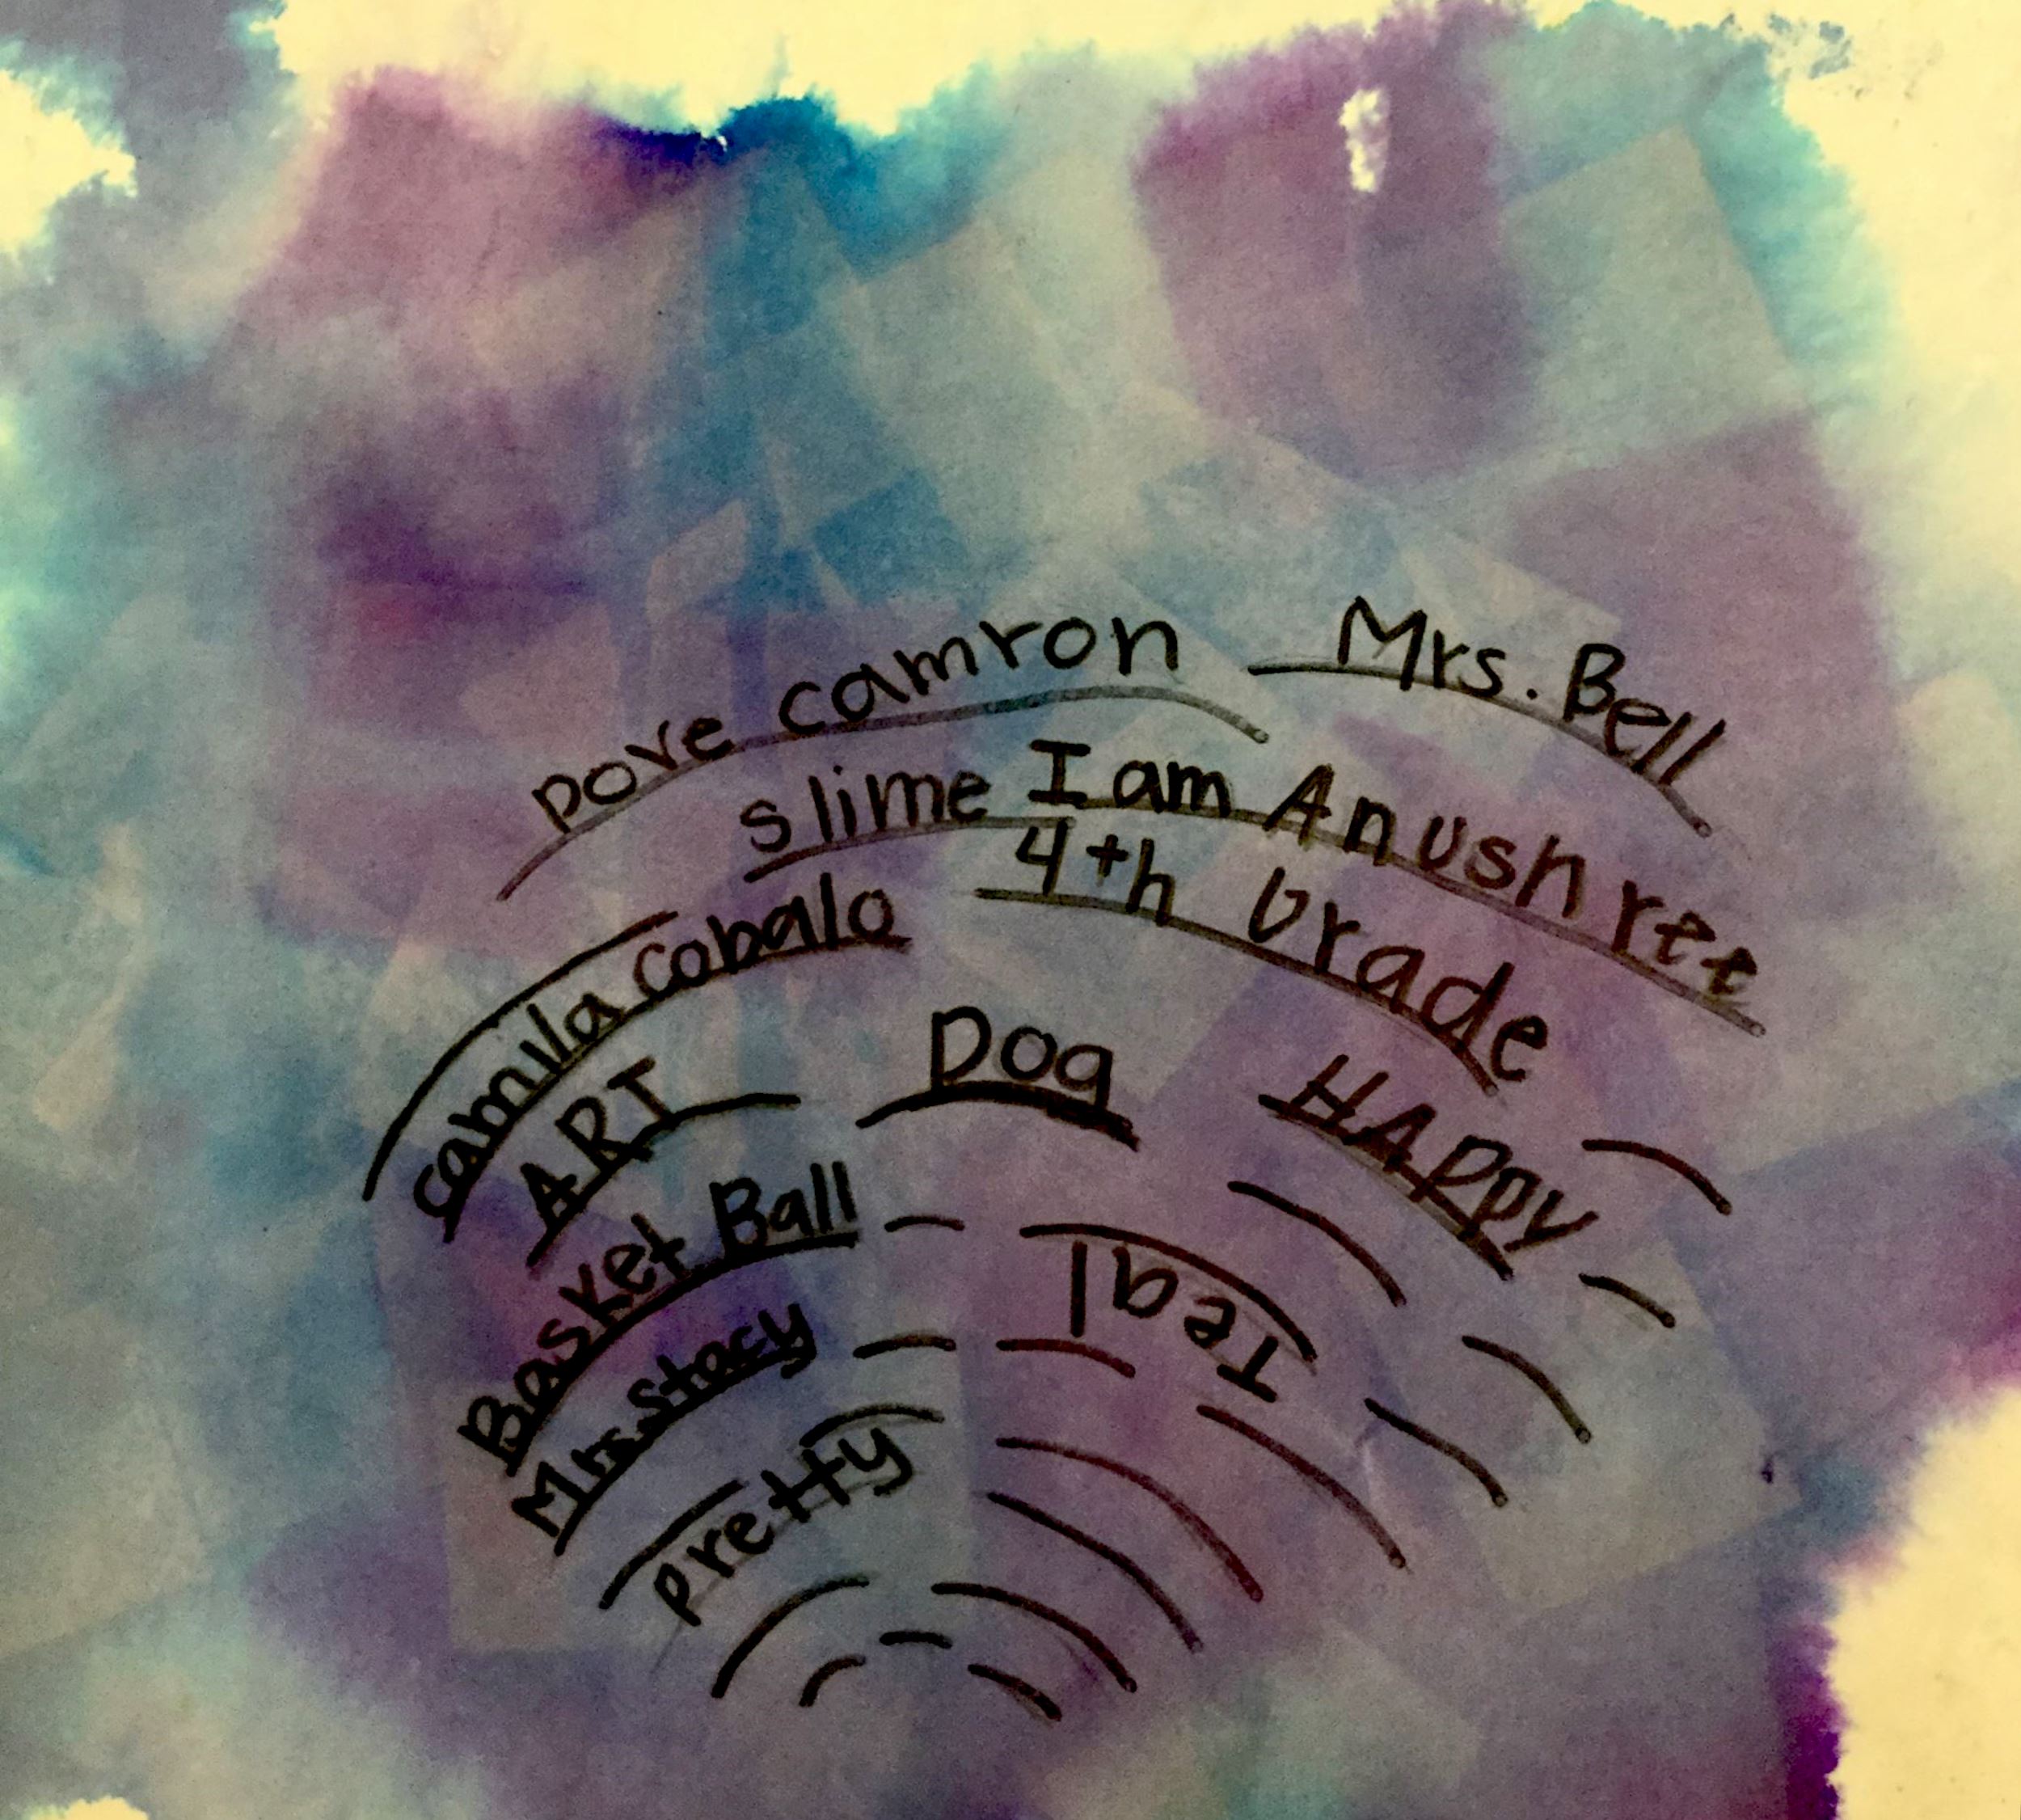 pove camron
Mrs. Bell
slime I am Anushree
4th Grade
camila cobalo
ART
Dog
HAPpy
Basket Ball
Teal
Mrs. stacy
pretty